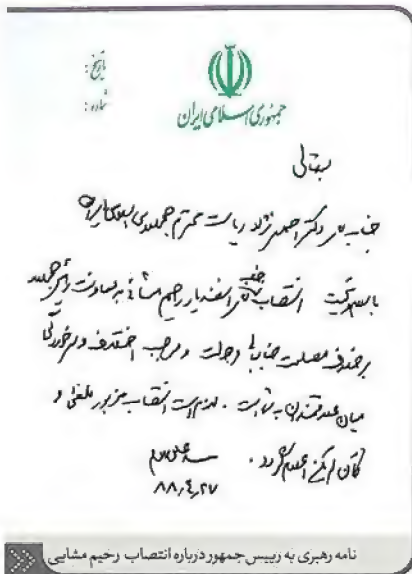 تاریخ:
شماره:
جمهوری اسلامی ایران
بسمه تعالی
جناب آقای دکتر احمدی نژاد ریاست محترم جمهوری اسلامی ایران
با سلام و تحیت انتصاب جناب آقای اسفندیار رحیم مشائی به معاونت رئیس جمهور
بر خلاف مصلحت جنابعالی و دولت و موجب اختلاف و سرخوردگی
میان علاقمندان به شما است. لازم است انتصاب مزبور ملغی و
کان لم یکن اعلام گردد. سید علی
۸۸,۴,۲۷
نامه رهبری به رییس جمهور درباره انتصاب رحیم مشایی